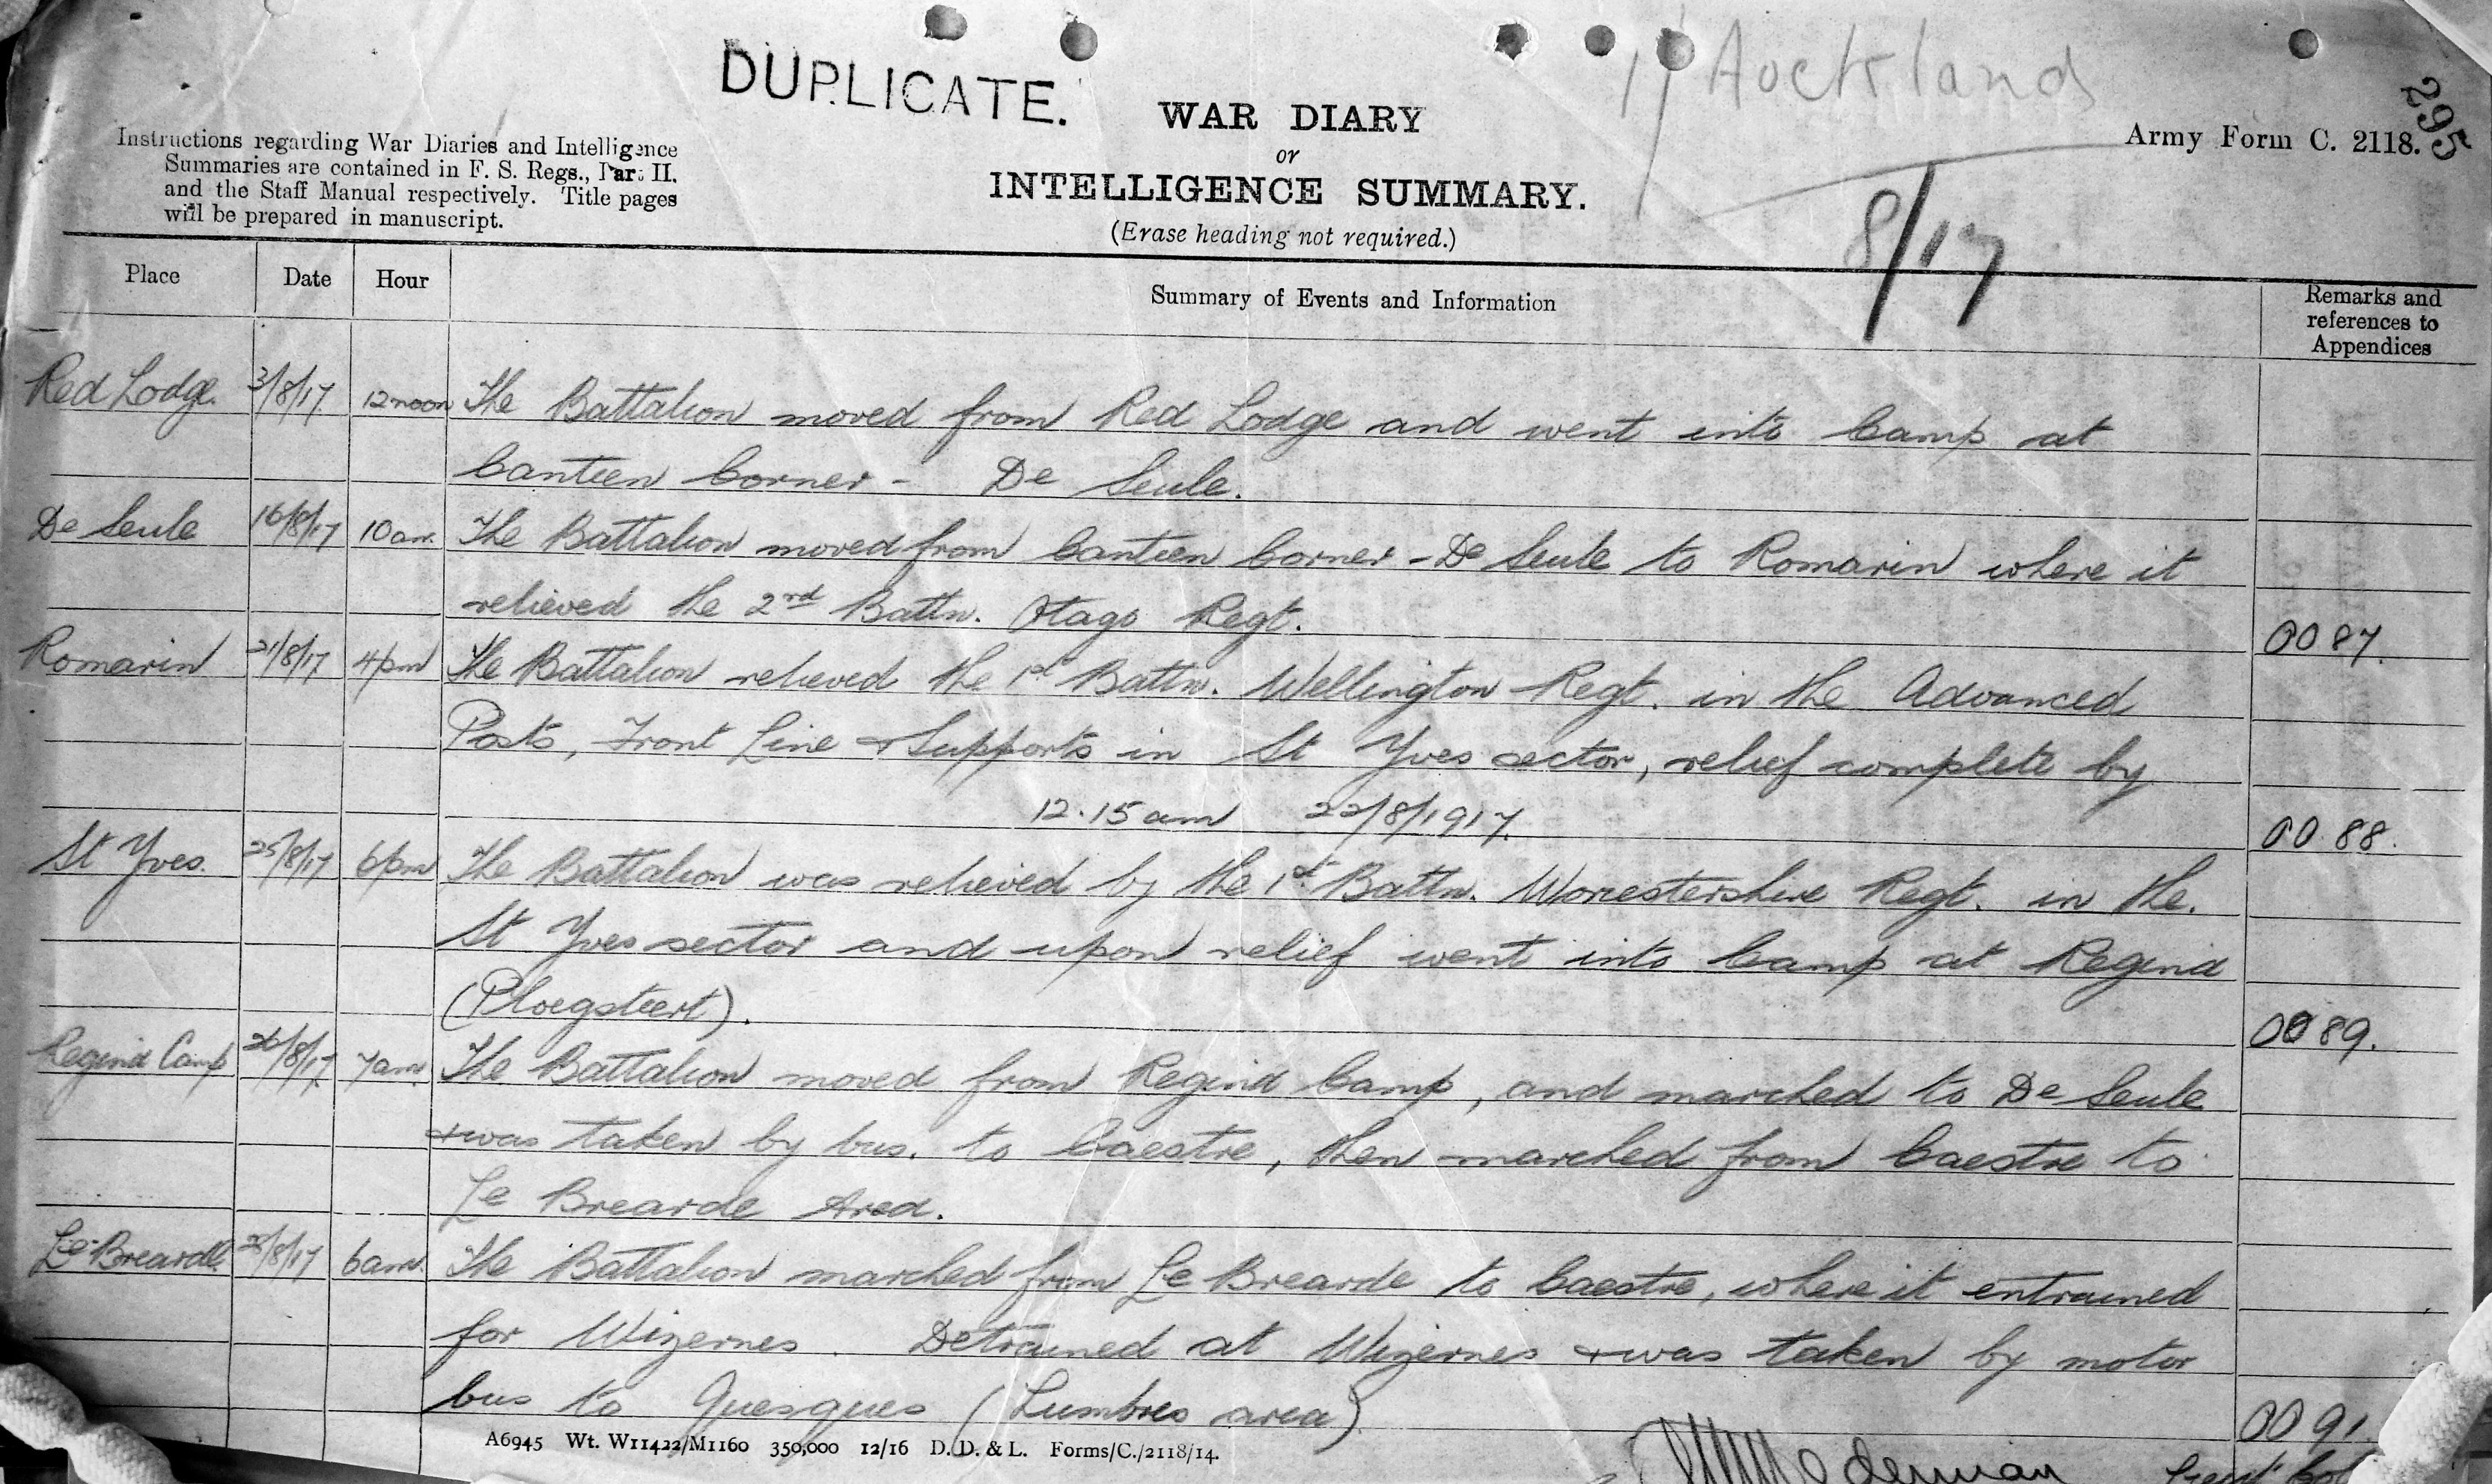 DUPLICATE.
1/ Auckland
295
WAR DIARY
or
INTELLIGENCE SUMMARY.
(Erase heading not required.)
Army Form C. 2118.
8/17
Instructions regarding War Diaries and Intelligence
Summaries are contained in F. S. Regs., Part II.
and the Staff Manual respectively. Title pages
will be prepared in manuscript.
Place Date Hour Summary of Events and Information Remarks and
references to
Appendices
Red Lodge. 3/8/17. 12 noon The Battalion moved from Red Lodge and went into Camp at
Canteen Corner - De Seule.
De Seule 16/8/17 10 am. The Battalion moved from Canteen Corner - De Seule to Romarin where it
relieved the 2nd Battn. Otago Regt. OO 87.
Romarin 21/8/17 4pm The Battalion relieved the 1st Battn. Wellington Regt. in the Advanced
Posts, Front Line & Supports in St Yves sector, relief complete by
12.15 am 22/8/1917. OO 88.
St Yves. 25/8/17 6pm The Battalion was relieved by the 1st Battn. Worcestershire Regt. in the.
St Yves sector and upon relief went into Camp at Regina
(Ploegsteert). OO 89.
Regina Camp 26/8/17. 7am. The Battalion moved from Regina Camp, and marched to De Seule
& was taken by bus. to Caestre, then marched from Caestre to
Le Brearde Area.
Le Brearde 28/8/17 6am. The Battalion marched from Le Brearde to Caestre, where it entrained
for Wizernes. Detrained at Wizernes & was taken by motor
bus to Quesques (Lumbres area) OO 91.
A6945 Wt. W11422/M1160 350,000 12/16 D. D. & L. Forms/C./2118/14.